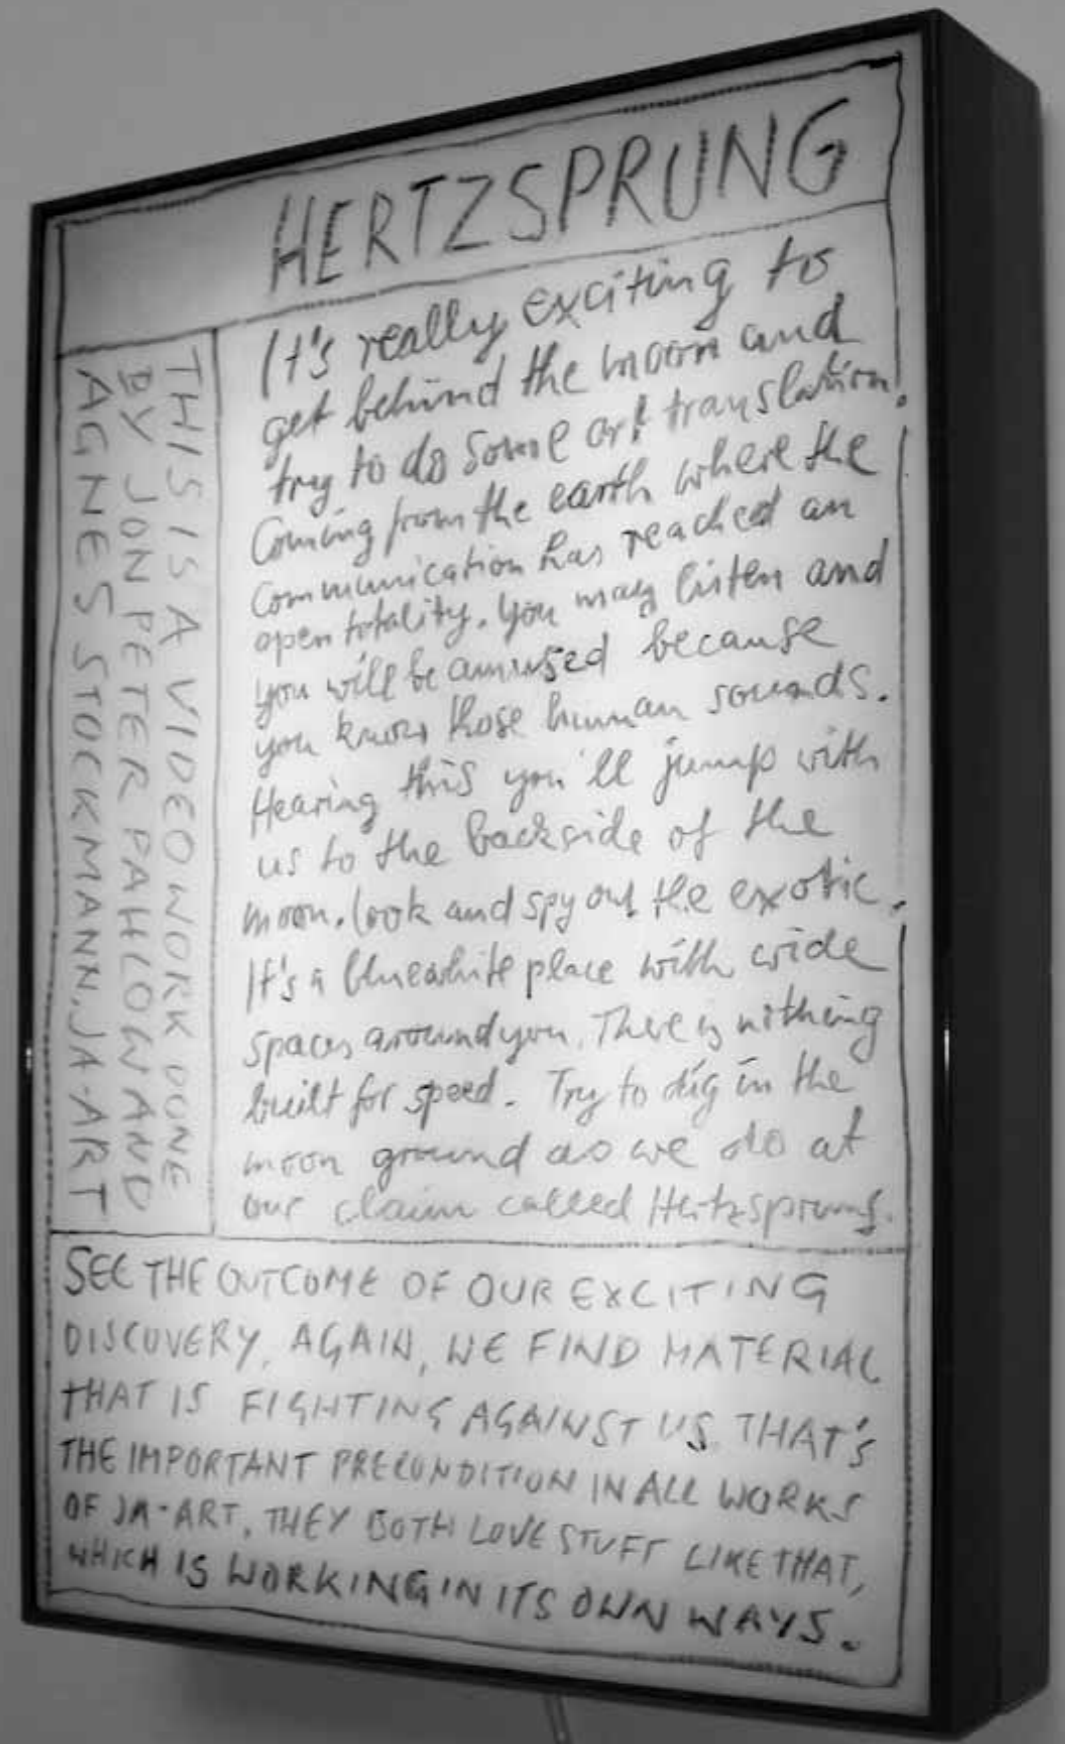 HERTZSPRUNG
THIS IS A VIDEOWORK DONE
BY JON PETER PAHLOW AND
AGNES STOCKMANN, JA-ART
It's really exciting to
get behind the moon and
try to do some art translation.
Coming from the earth where the
communication has reached an
open totality. You may listen and
you will be amused because
you know those human sounds.
Hearing this you'll jump with
us to the backside of the
moon. Look and spy out the exotic.
It's a bluewhite place with wide
spaces around you. There is nothing
built for speed. Try to dig in the
moon ground as we do at
our claim called Hertzsprung.
SEE THE OUTCOME OF OUR EXCITING
DISCOVERY. AGAIN, WE FIND MATERIAL
THAT IS FIGHTING AGAINST US. THAT'S
THE IMPORTANT PRECONDITION IN ALL WORKS
OF JA-ART. THEY BOTH LOVE STUFF LIKE THAT,
WHICH IS WORKING IN ITS OWN WAYS.